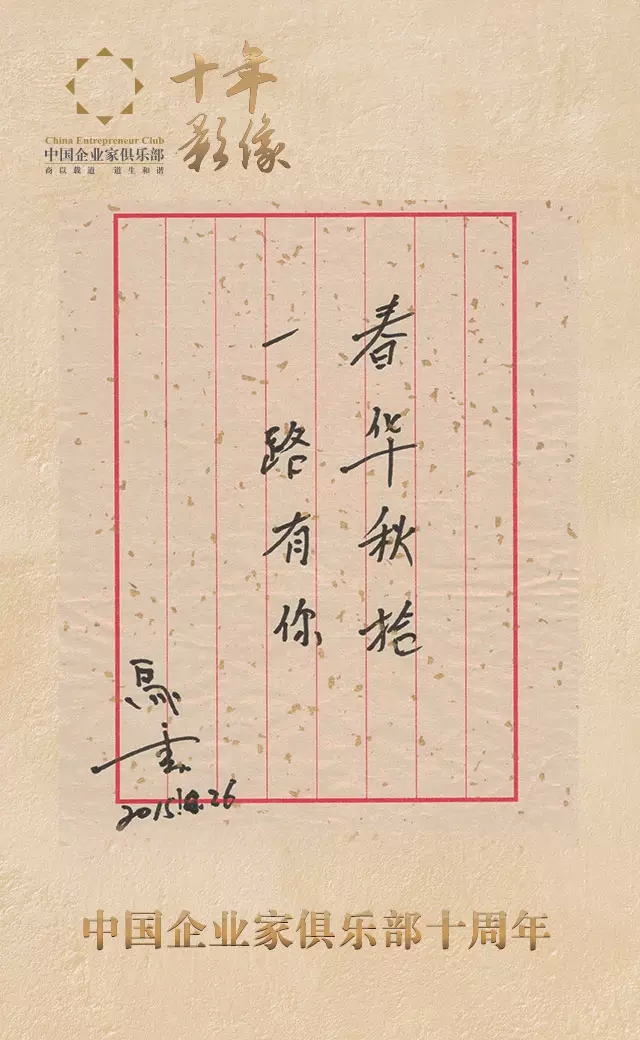 十年
影像
China Entrepreneur Club
中国企业家俱乐部
商以载道 道生和谐
春华秋拾
一路有你
馬云
中国企业家俱乐部十周年